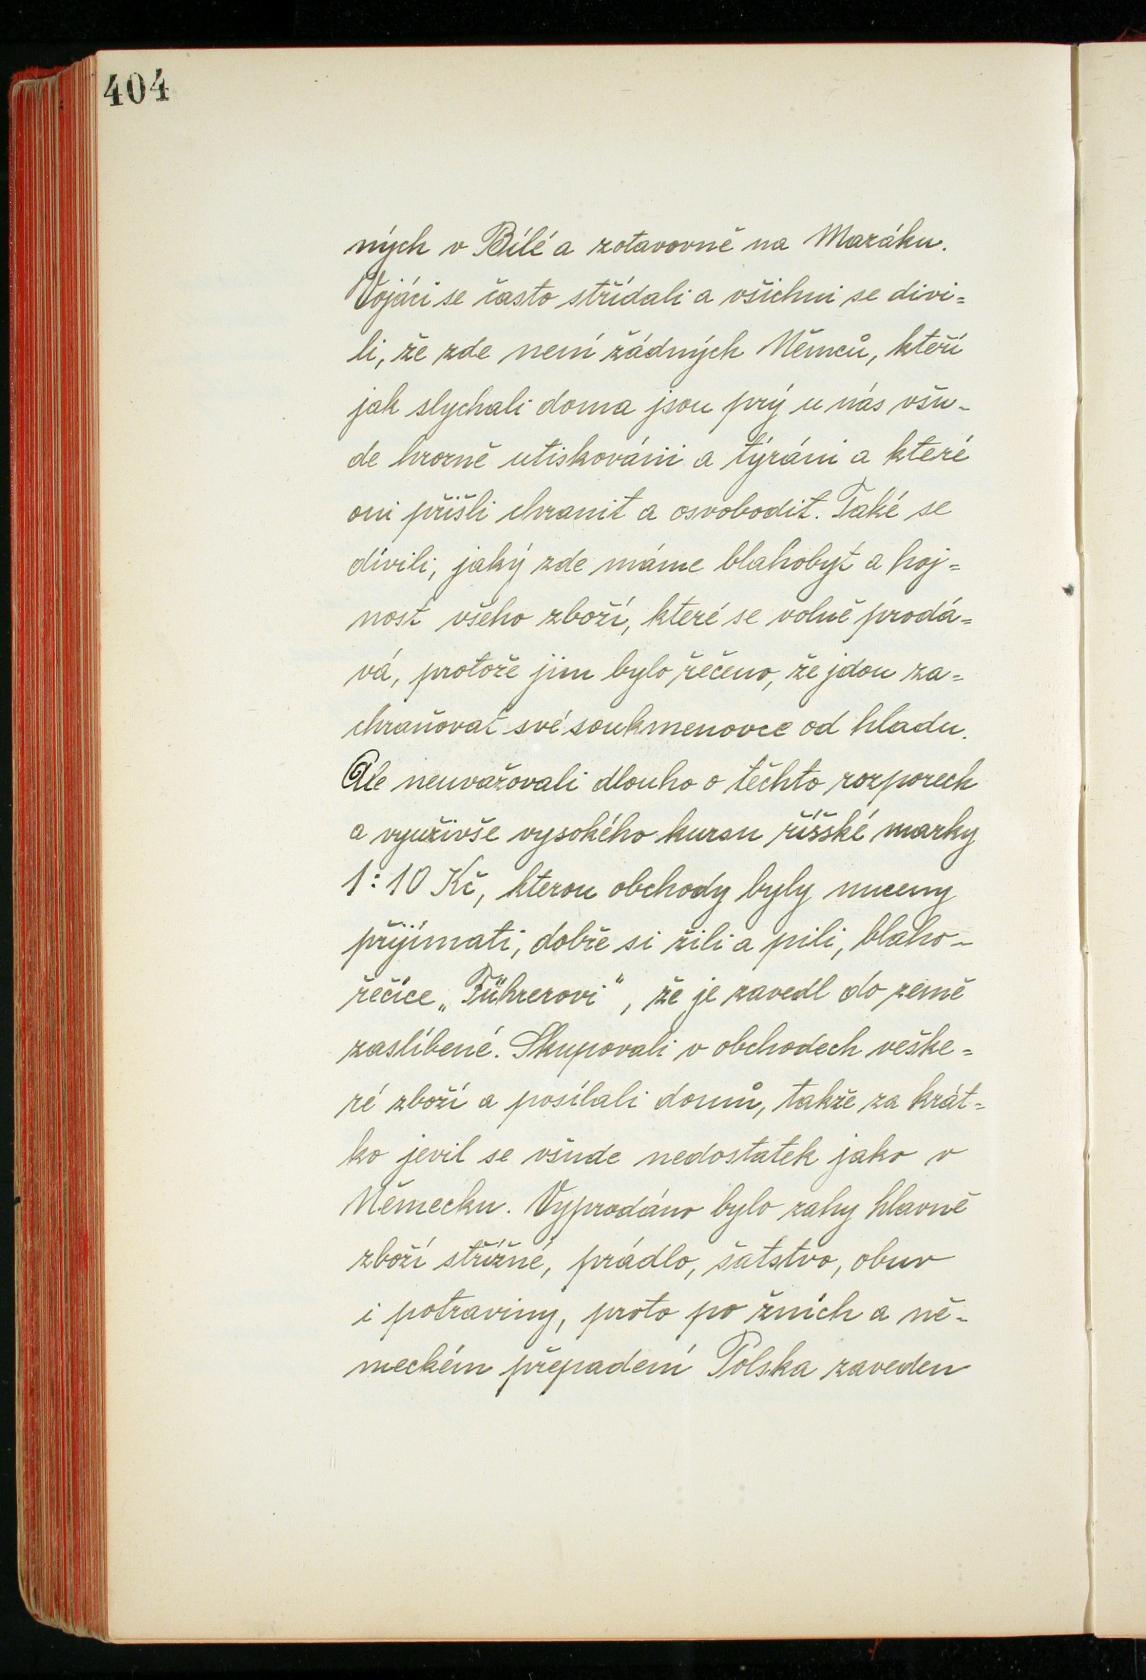 404
ných v Bílé a zotavovně na Mazáku.
Vojáci se často střídali a všichni se divi=
li, že zde není žádných Němců, kteří
jak slychali doma jsou prý u nás všu-
de hrozně utiskováni a týráni a které
oni přišli chranit a osvobodit. Také se
divili, jaký zde máme blahobyt a hoj=
nost všeho zboží, které se volně prodá=
vá, protože jim bylo řečeno, že jdou za=
chraňovat své soukmenovce od hladu.
Ale neuvažovali dlouho o těchto rozporech
a využivše vysokého kursu říšské marky
1:10 Kč, kterou obchody byly nuceny
přijímati, dobře si žili a pili, blaho-
řečíce „Führerovi“, že je zavedl do země
zaslíbené. Skupovali v obchodech veške=
ré zboží a posílali domů, takže za krát=
ko jevil se všude nedostatek jako v
Německu. Vyprodáno bylo zahy hlavně
zboží střižné, prádlo, šatstvo, obuv
i potraviny, proto po žních a ně-
meckém přepadení Polska zaveden